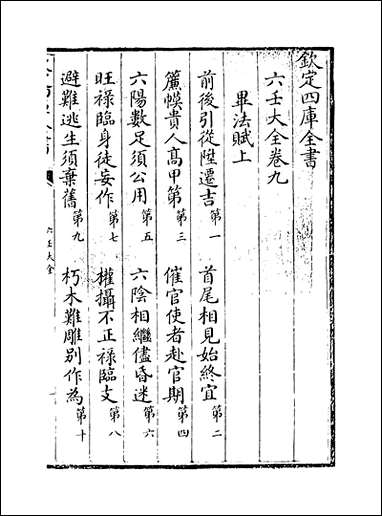 欽定四庫全書
六壬大全卷九
畢法賦上
前後引從陞遷吉第一　首尾相見始終宜第二
簾幙貴人髙甲第第三　催官使者赴官期第四
六陽數足須公用第五　六陰相繼儘昏迷第六
旺禄臨身徒妄作第七　權攝不正禄臨支第八
避難逃生須棄舊第九　朽木難雕别作為第十
六壬大全